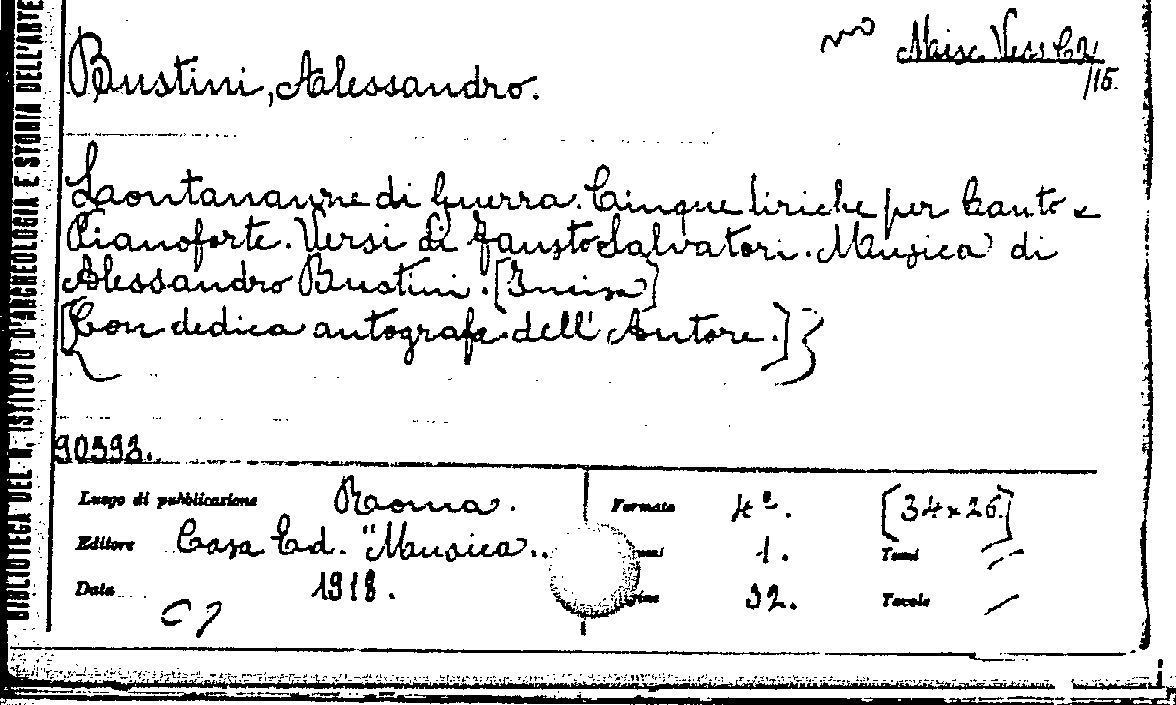 BIBLIOTECA DEL R. ISTITUTO D'ARCHEOLOGIA E STORIA DELL'ARTE
Misc. Vess. C2/
/15.
Bustini, Alessandro.
Laontananze di Guerra. Cinque liriche per Canto e
Pianoforte. Versi di Fausto Salvatori. Musica di
Alessandro Bustini. [Incisa]
[Con dedica autografa dell'Autore.]
90393.
Luogo di pubblicazione Roma. Formato 4º. [34x26.]
Editore Casa Ed. "Musica.. 1. Tomi
Data 1918. 32. Tavole